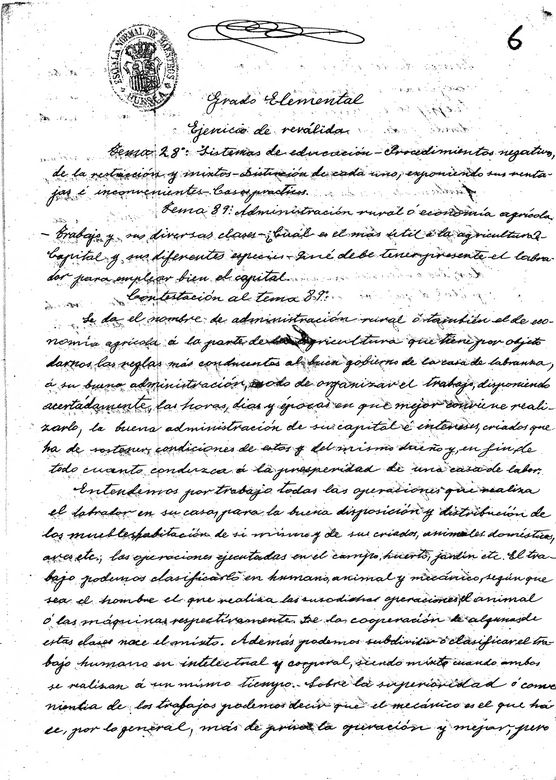 6
ESCUELA NORMAL DE MAESTROS
HUESCA
Grado Elemental
Ejercicio de reválida
Tema 28º: Sistemas de educación - Procedimientos negativo,
de la restricción y mixtos - Distinción de cada uno, exponiendo sus venta-
jas é inconvenientes - Caso practico.
Tema 89º: Administración rural ó economía agrícola
- Trabajo y sus diversas clases - ¿Cuál es el más útil á la agricultura? -
Capital y sus diferentes especies - Qué debe tener presente el labra-
dor para emplear bien el capital.
Contestación al tema 89º:
Se da el nombre de administración rural ó también el de eco-
nomía agrícola á la parte de la agricultura que tiene por objeto
darnos las reglas más conducentes al buen gobierno de la casa de labranza,
á su buena administración, modo de organizar el trabajo, disponiendo
acertadamente, las horas, dias y épocas en que mejor conviene reali-
zarlo, la buena administración de su capital é intereses, criados que
ha de sostener, condiciones de estos y del mismo dueño y, en fin, de
todo cuanto conduzca á la prosperidad de una casa de labor.
Entendemos por trabajo todas las operaciones que realiza
el labrador en su casa, para la buena disposición y distribución de
los muebles, habitación de si mismo y de sus criados, animales domésticos,
aves, etc.; las operaciones ejecutadas en el campo, huerto, jardín etc. El tra-
bajo podemos clasificarlo en humano, animal y mecánico, según que
sea el hombre el que realiza las susodichas operaciones, el animal
ó las máquinas respectivamente. De la cooperación de algunas de
estas clases nace el mixto. Además podemos subdividir ó clasificar el tra-
bajo humano en intelectual y corporal, siendo mixto cuando ambos
se realizan á un mismo tiempo. Sobre la superioridad ó conve-
niencia de los trabajos podemos decir que el mecánico es el que há-
ce, por lo general, más de prisa la operación y mejor, pero